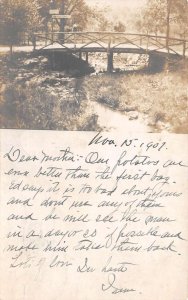 Nov. 15. 1907.
Dear Mother - Our potatoes are
even better than the first bag.
Ed says it is too bad about yours
and dont use any of them
and he will see the man
in a day or so if possible and
and make him take them back.
Lots of love In haste